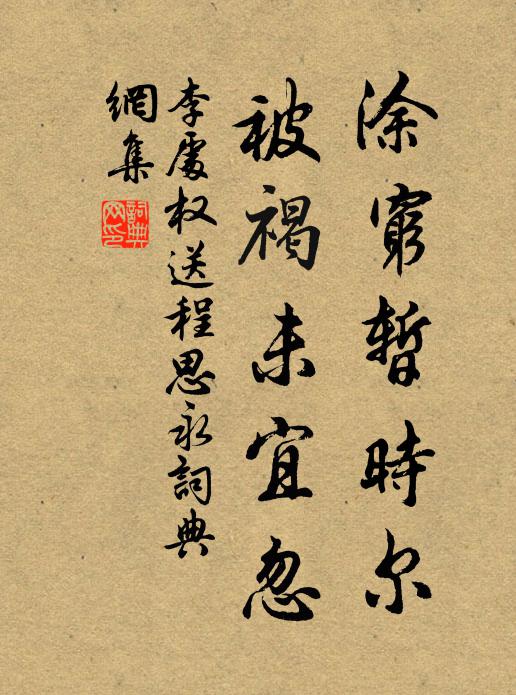 涂窮暫時尔
被褐未宜忽
李處权送程思永詞典
網集
詞典網印